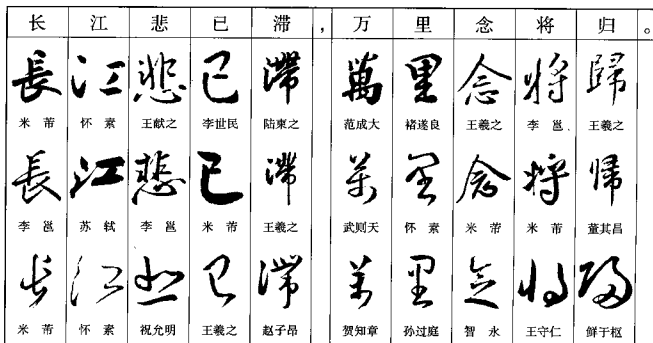 长江悲已滞，万里念将归。
長江悲已滯萬里念将歸
米芾 怀素 王献之 李世民 陆柬之 范成大 褚遂良 王羲之 李邕 王羲之
長江悲已滯万里念将帰
李邕 苏轼 李邕 米芾 王羲之 武则天 怀素 米芾 米芾 董其昌
长江悲已滯万里念将归
米芾 怀素 祝允明 王羲之 赵子昂 贺知章 孙过庭 智永 王守仁 鲜于枢